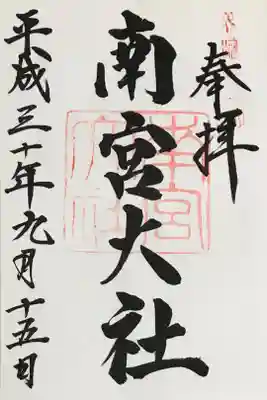 奉拝
南宮大社
平成三十年九月十五日